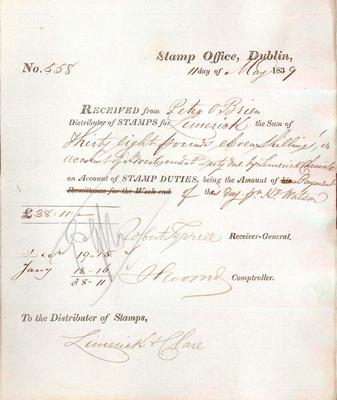 Stamp Office, Dublin,
No. 558
11 day of May 1839
RECEIVED from Peter O'Brien
Distributer of STAMPS for Limerick the Sum of
Thirty eight pounds eleven Shillings, on
Account of Advertisement duty due by Limerick
on Account of STAMP DUTIES, being the Amount of Payment
Remittance for the Week end of the day for Watson
£38-11-
Robert Tyrrell Receiver-General.
19-15
Jany 18-16
38-11
Comptroller.
To the Distributer of Stamps,
Limerick & Clare